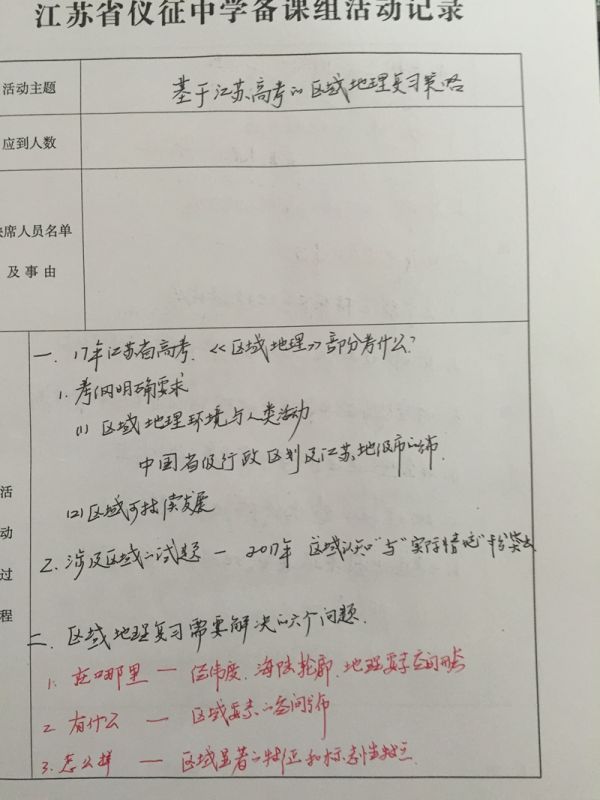 江苏省仪征中学备课组活动记录
活动主题
基于江苏高考的区域地理复习策略
应到人数
缺席人员名单
及事由
活动过程
一、17年江苏省高考,《区域地理》部分考什么?
1. 考纲明确要求
(1) 区域地理环境与人类活动
中国省级行政区划及江苏地级市的分布
(2) 区域可持续发展
2. 涉及区域的试题 — 2017年 区域认知"与"实际情境"十分突出
二、区域地理复习需要解决的六个问题.
1. 在哪里 — 经纬度、海陆轮廓、地理要素空间形态
2. 有什么 — 区域要素的空间分布
3. 怎么样 — 区域显著的特征和标志性特点